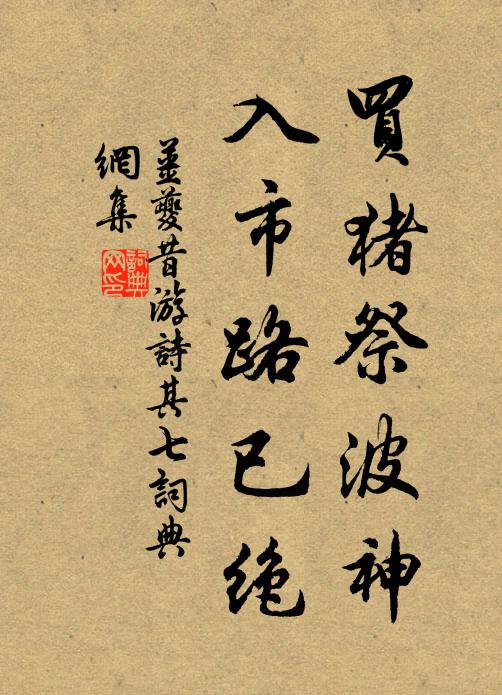 買猪祭波神
入市路已绝
姜夔昔游詩其七詞典
網集
詞典
网印